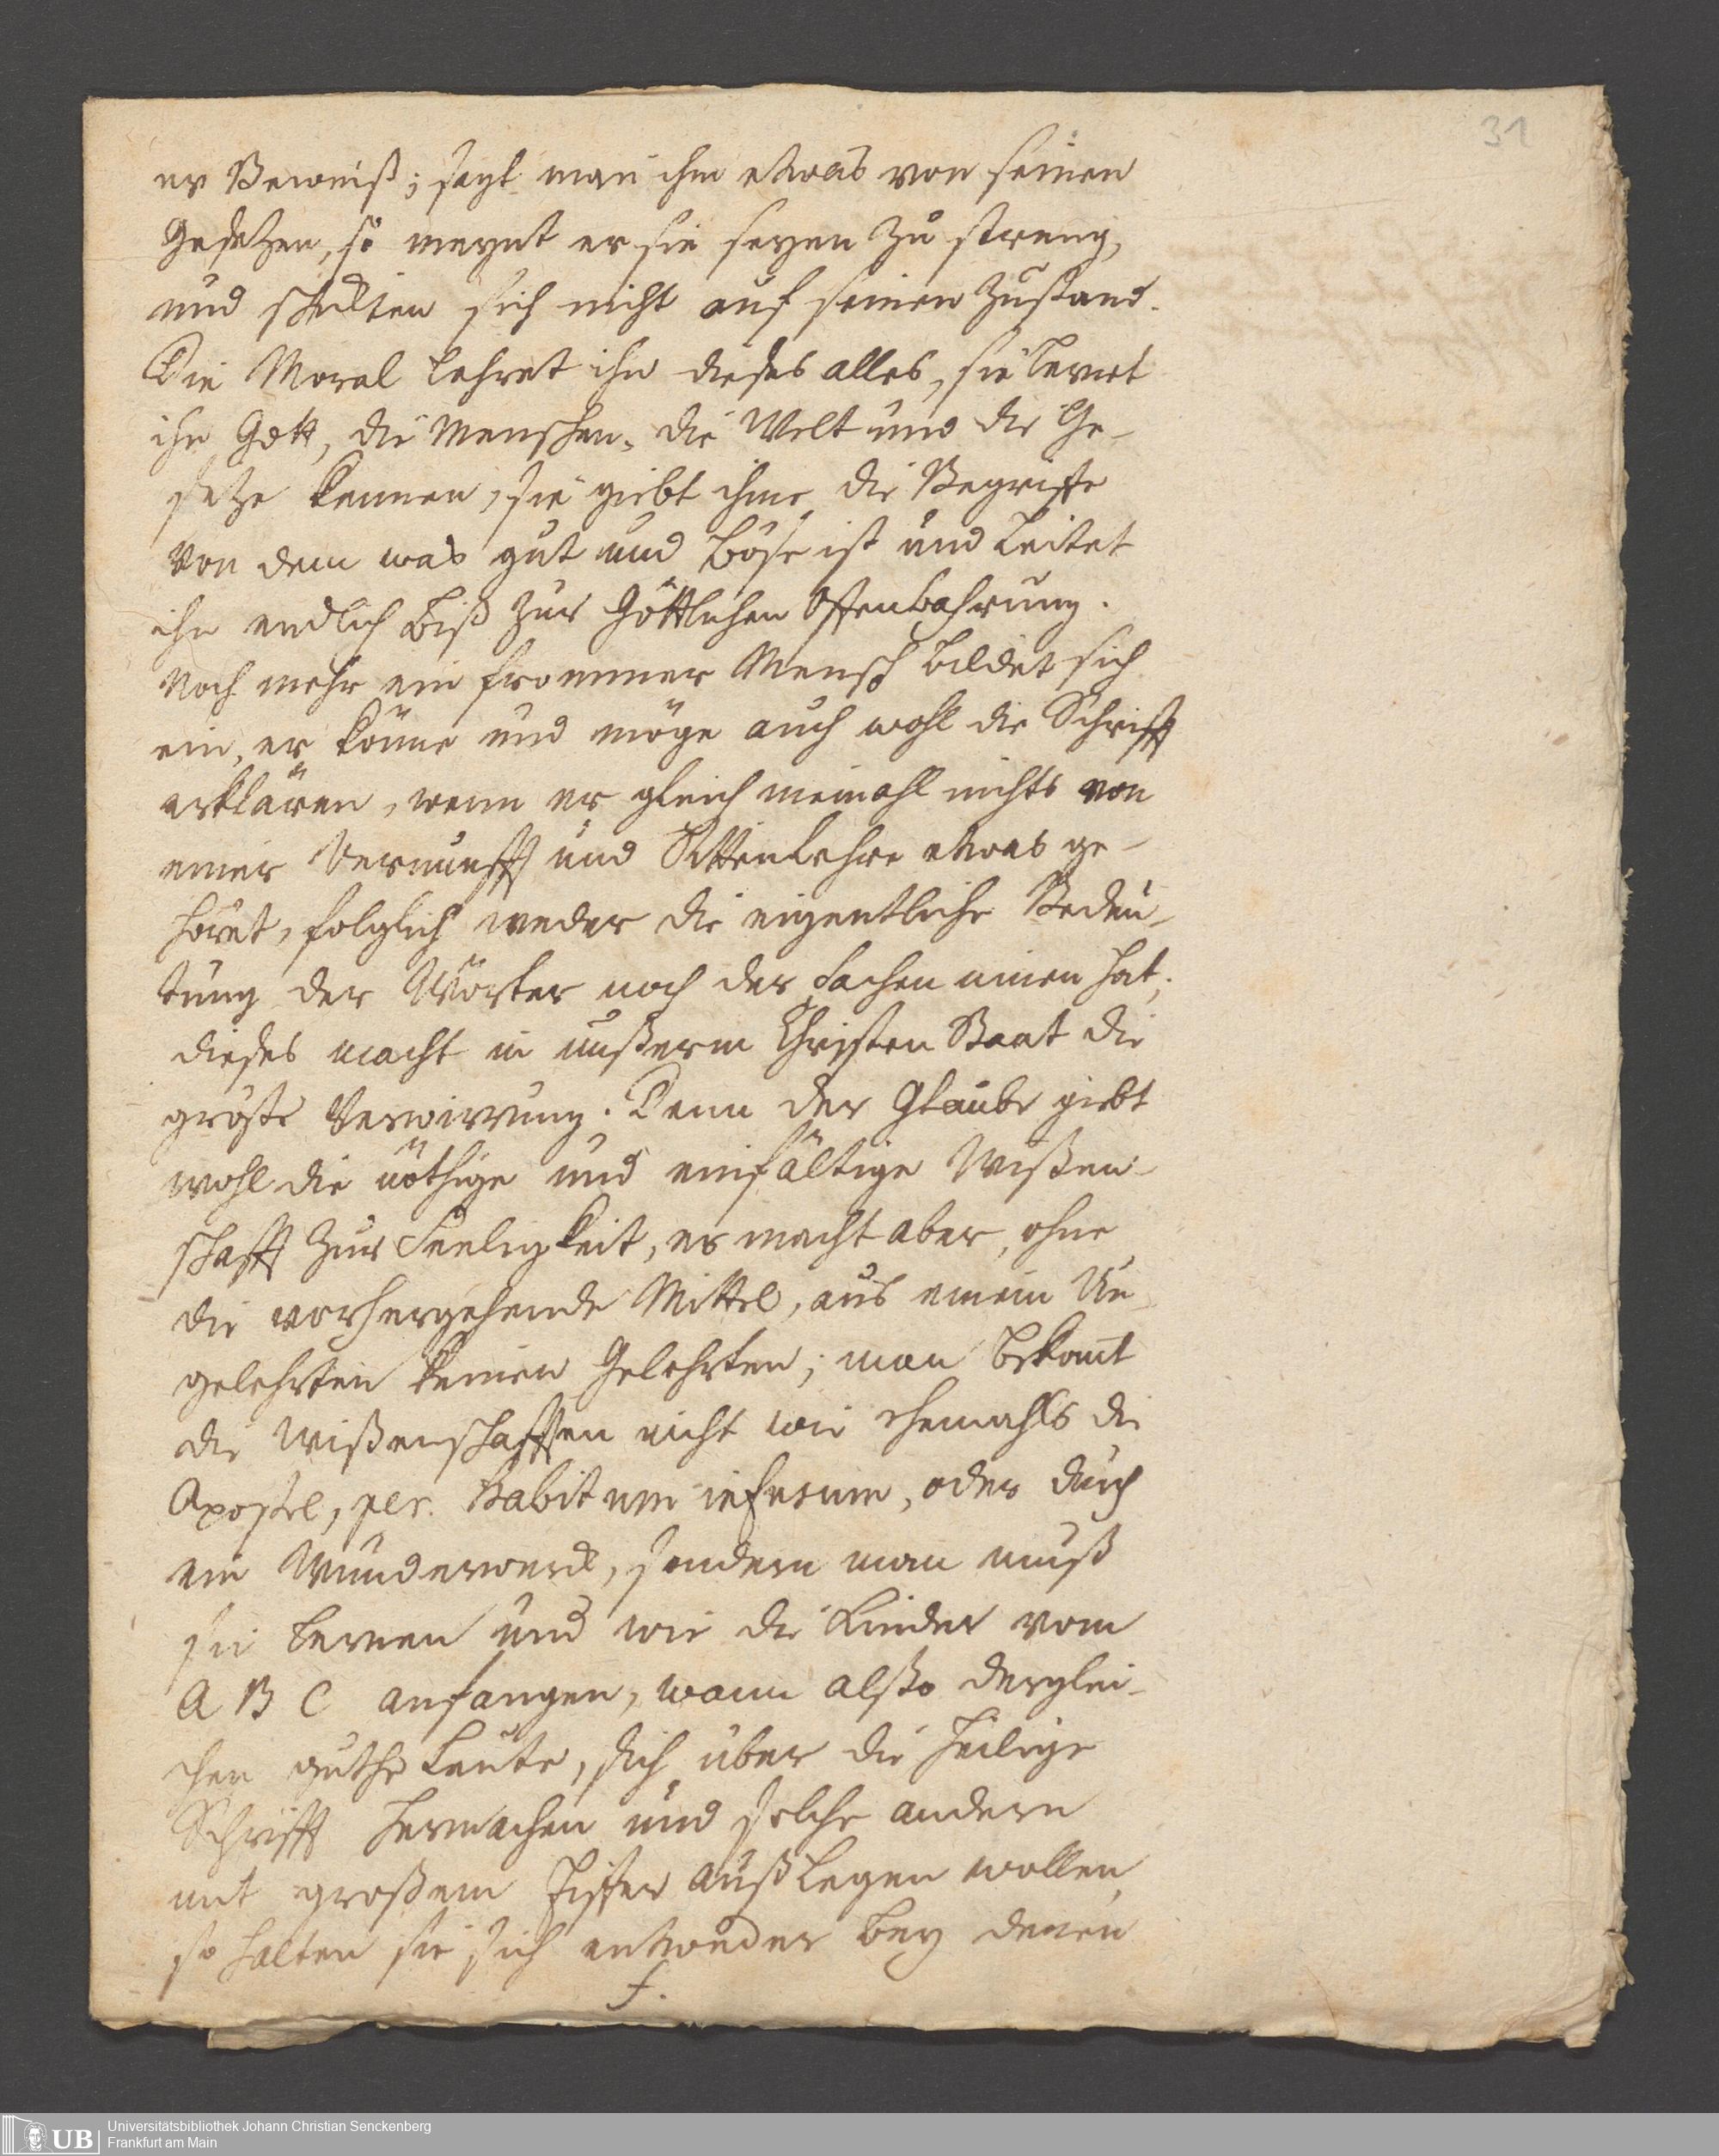 31
er Beweiß; sagt man ihm etwas von seinen
Gesetzen, so meynt er sie seyen zu streng,
und schickten sich nicht auf seinen Zustand.
Die Moral lehret ihn dieses alles, sie lernet
ihn Gott, die Menschen, die Welt und die Ge-
setze kennen, sie giebt ihme die Begriffe
von dem was gut und böse ist und leitet
ihn endlich biß zur Göttlichen Offenbahrung.
Noch mehr ein frommer Mensch bildet sich
ein, er könne und möge auch wohl die Schrifft
erklären, wenn er gleich niemahl nichts von
einer Vernunfft und Sittenlehre etwas ge-
höret, folglich weder die eigentliche Bedeu-
tung der Wörter noch der Sachen innen hat;
dieses macht in unßerm Christen Staat die
größte Verwirrung. Denn der Glaube giebt
wohl die nöthige und einfältige Wißen-
schafft zur Seeligkeit, er macht aber, ohne
die vorhergehende Mittel, aus einem Un-
gelehrten keinen Gelehrten; man bekomt
die Wißenschafften nicht wie ehemahls die
Apostel, per. Habitum infusum, oder durch
ein Wunderwerck, sondern man muß
sie lernen und wie die Kinder vom
A B C anfangen, wann alßo derglei-
chen guthe Leute, sich über die heilige
Schrifft hermachen und solche andern
mit großem Eiffer außlegen wollen,
so halten sie sich entweder bey denen
f.
UB
Universitätsbibliothek Johann Christian Senckenberg
Frankfurt am Main